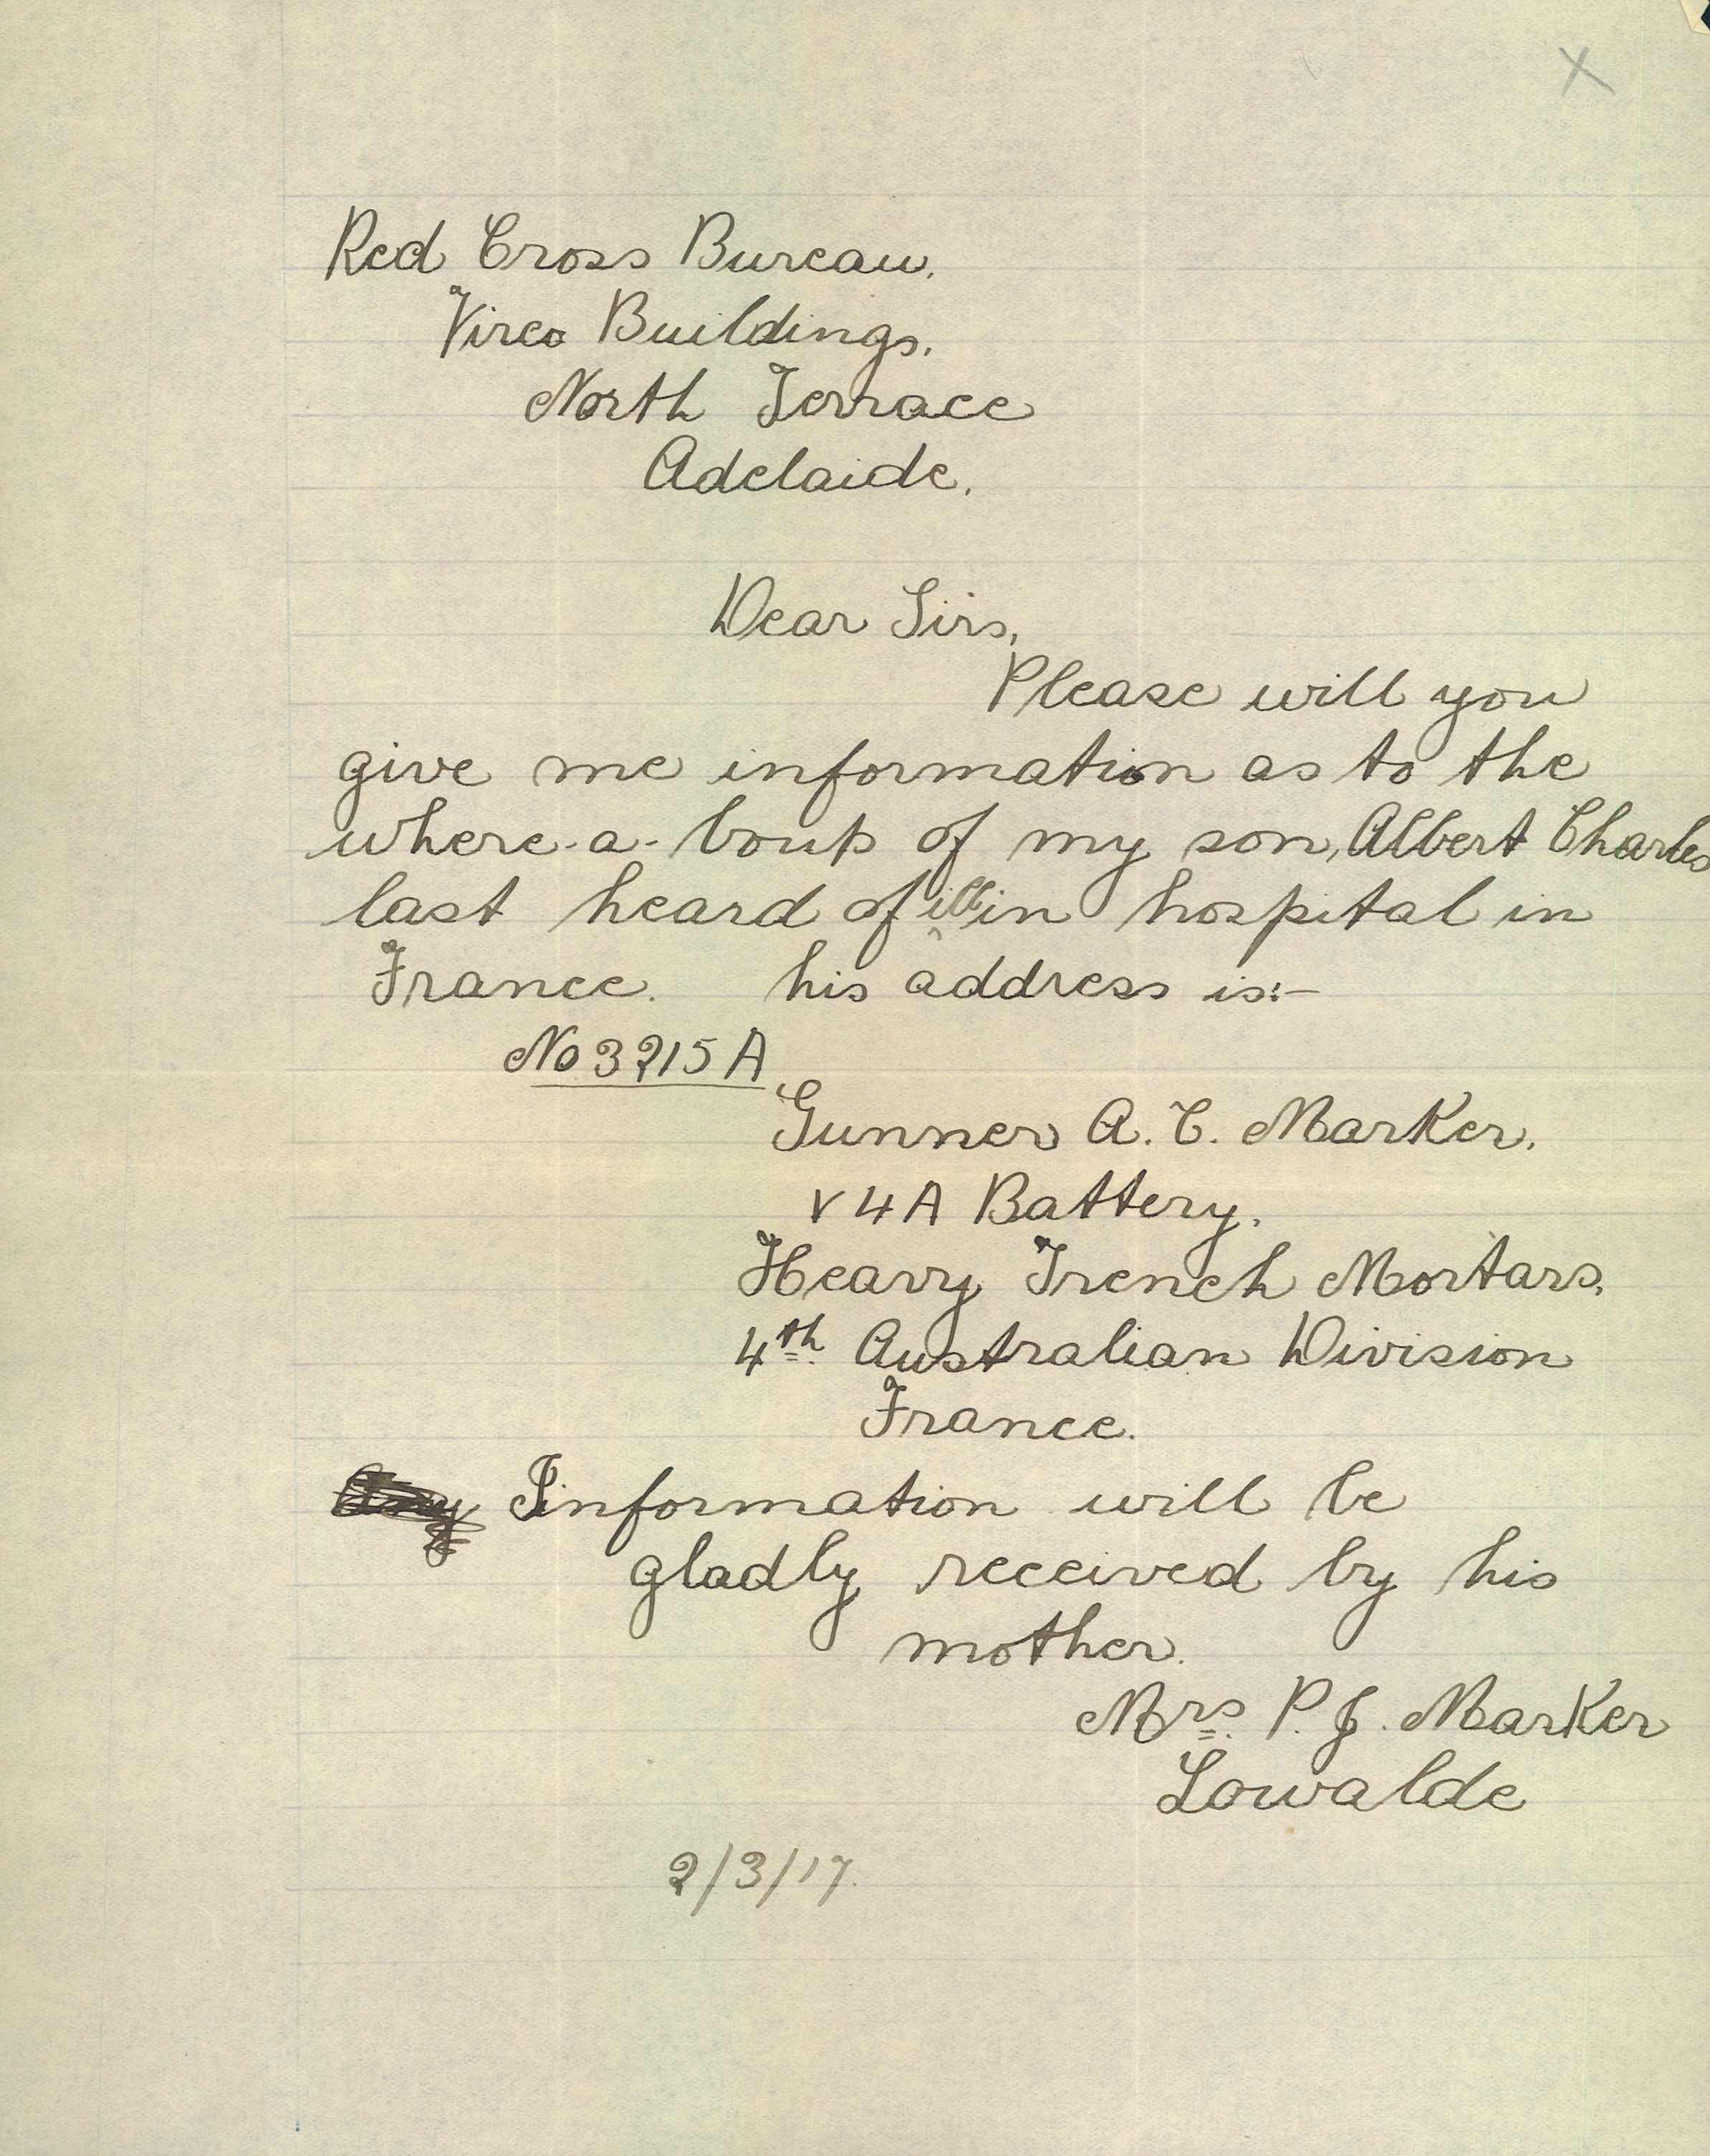 Red Cross Bureau.
Virco Buildings.
North Terrace
Adelaide.
Dear Sirs,
Please will you
give me information as to the
where-a-bouts of my son, Albert Charles
last heard of ill in hospital in
France. his address is:-
No 3215 A
Gunner A. C. Marker.
V 4 A Battery.
Heavy Trench Mortars.
4th Australian Division
France.
Any Iinformation will be
gladly received by his
mother.
Mrs. P. J. Marker
Lowalde
2/3/17.